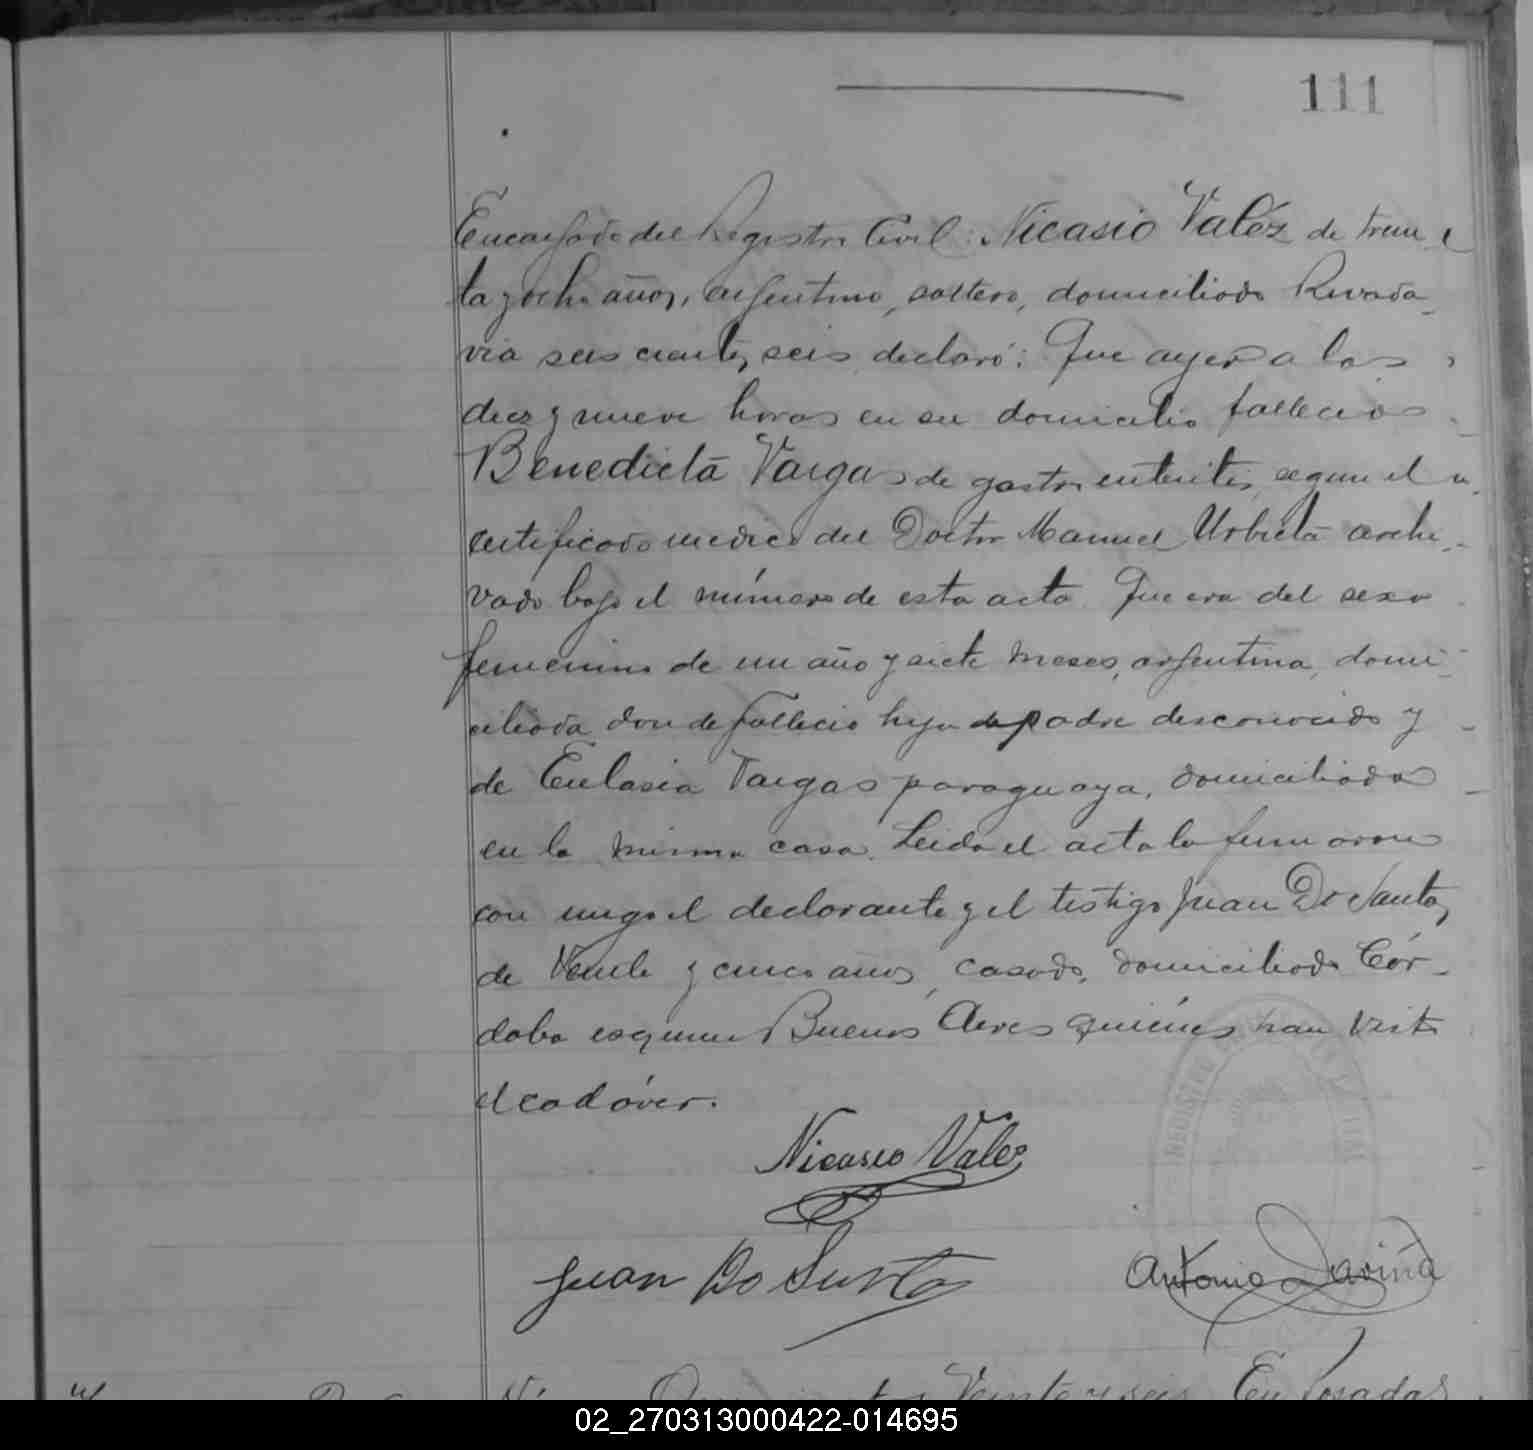 111
Encargado del Registro Civil: Nicasio Valéz de trein
ta y ocho años, argentino, soltero, domiciliado Rivada
via seis cientos seis declaró: Que ayer a las
diez y nueve horas en su domicilio fallecio
Benedicta Vargas de gastro enteritis, segun el
certificado medico del Doctor Manuel Urbieta archi
vado bajo el número de esta acta. Que era del sexo
femenino de un año y siete meses, argentina, domi
ciliada donde fallecio hija de padre desconocido y
de Eulasia Vargas paraguaya, domiciliada
en la misma casa. Leida el acta la firmaron
con migo el declarante y el testigo Juan Do Santos,
de Veinte y cinco años, casado, domiciliado Cór-
doba esquina Buenos Aires quiénes han visto
el cadáver.
Nicasio Valez
Juan Do Santos
Antonio Laviña
Veinte y seis En Posadas
02_270313000422-014695